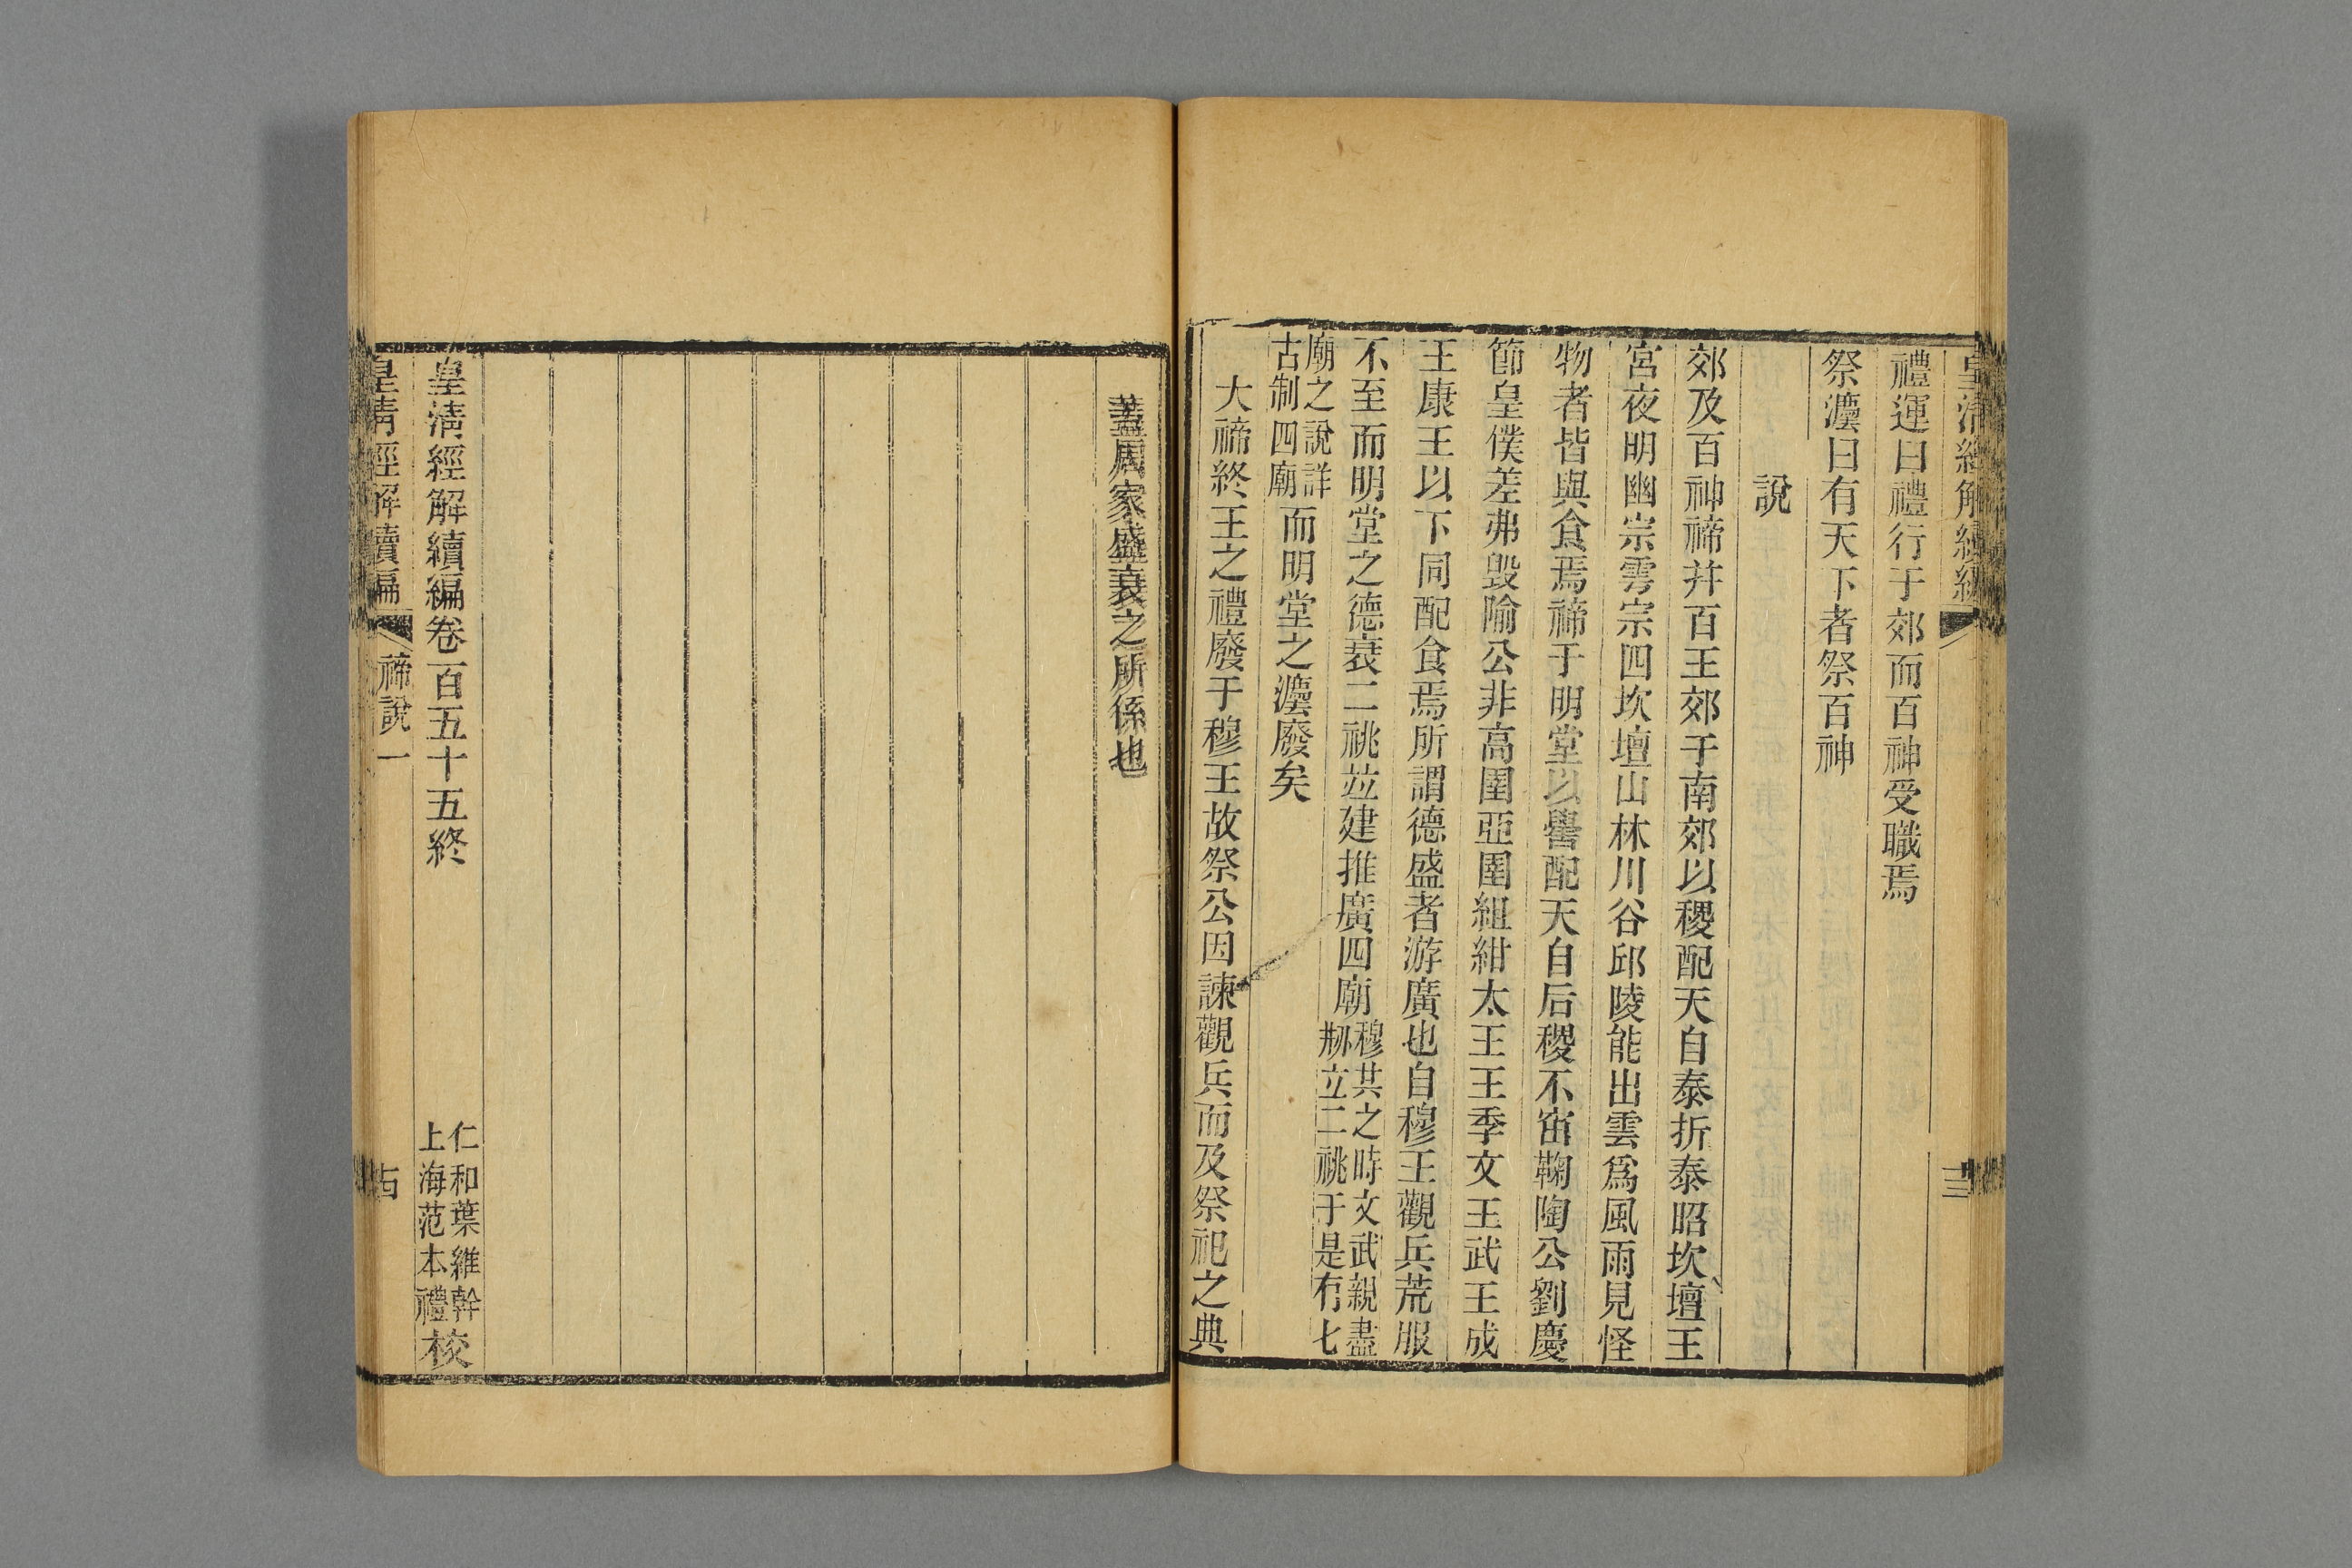 皇清經解續編
三
禮運曰禮行于郊而百神受職焉
祭灋曰有天下者祭百神
說
郊及百神禘并百王郊于南郊以稷配天自泰折泰昭坎壇王
宮夜明幽宗雩宗四坎壇山林川谷邱陵能出雲爲風雨見怪
物者皆與食焉禘于明堂以嚳配天自后稷不窋鞠陶公劉慶
節皇僕差弗毀隃公非高圉亞圉組紺太王王季文王武王成
王康王以下同配食焉所謂德盛者游廣也自穆王觀兵荒服
不至而明堂之德衰二祧竝建推廣四廟穆共之時文武親盡
剏立二祧于是有七
廟之說詳
古制四廟而明堂之灋廢矣
大禘終王之禮廢于穆王故祭公因諫觀兵而及祭祀之典
蓋周家盛衰之所係也
皇清經解續編卷百五十五終
仁和葉維幹
上海范本禮校
皇清經解續編 禘說一